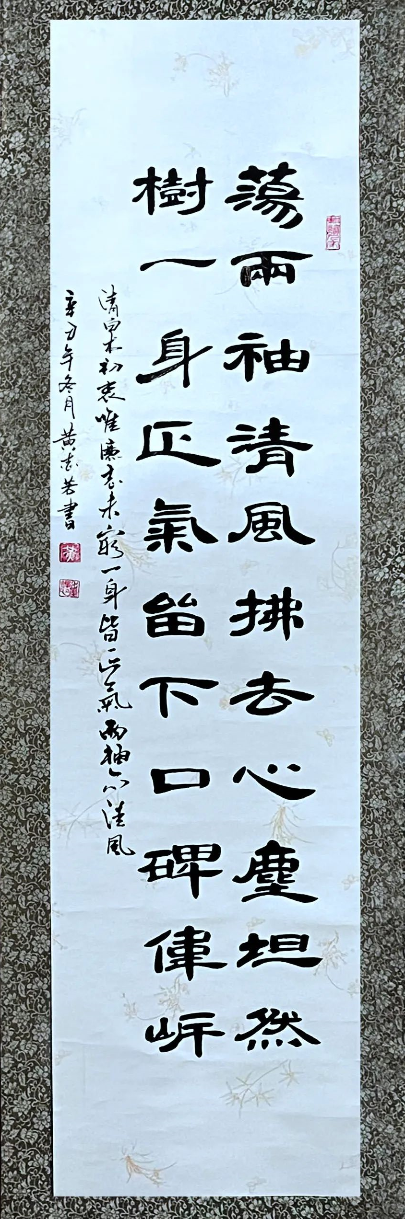 蕩兩袖清風拂去心塵坦然
樹一身正氣留下口碑偉岸
清泉初衷唯廉志未窮一身皆正氣兩袖亦清風
辛丑年冬月黄志芳書